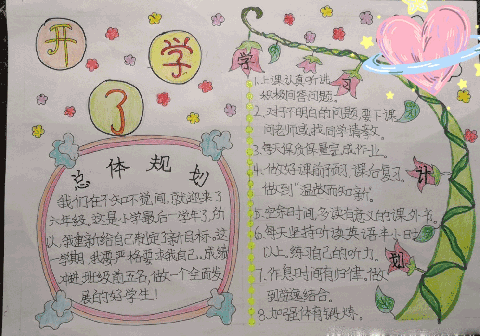 开
学
了
学
习
计
划
总体规划
我们在不知不觉间,就迎来了
六年级。这是小学最后一学年了,所
以,我重新给自己制定了新目标。这
学期,我要严格要求我自己,成绩
冲进班级前五名,做一个全面发
展的好学生!
1.上课认真听讲
积极回答问题。
2.对于不明白的问题,要下课
问老师或找同学请教。
3.每天保质保量完成作业。
4.做好课前预习,课后复习,
做到“温故而知新”。
5.空余时间,多读有意义的课外书。
6.每天坚持听读英语半小时
以上,练习自己的听力。
7.作息时间有规律。做
到劳逸结合。
8.加强体育锻炼。